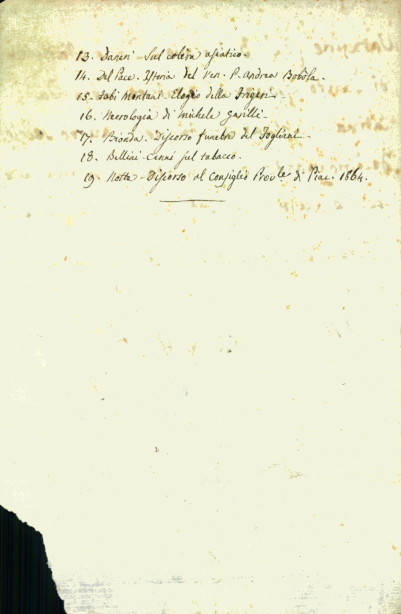 13. Daneri - Sul colera asiatico -
14. Del Pace. Istoria del Ven. P. Andrea Bobola.
15. Fabi Montani Elogio della
16. Necrologia di Michele
17. Bionda. Discorso funebre del
18. Bellini Cenni sul tabacco -
19. Notta - Discorso al Consiglio Prov.le di Piac. 1864.